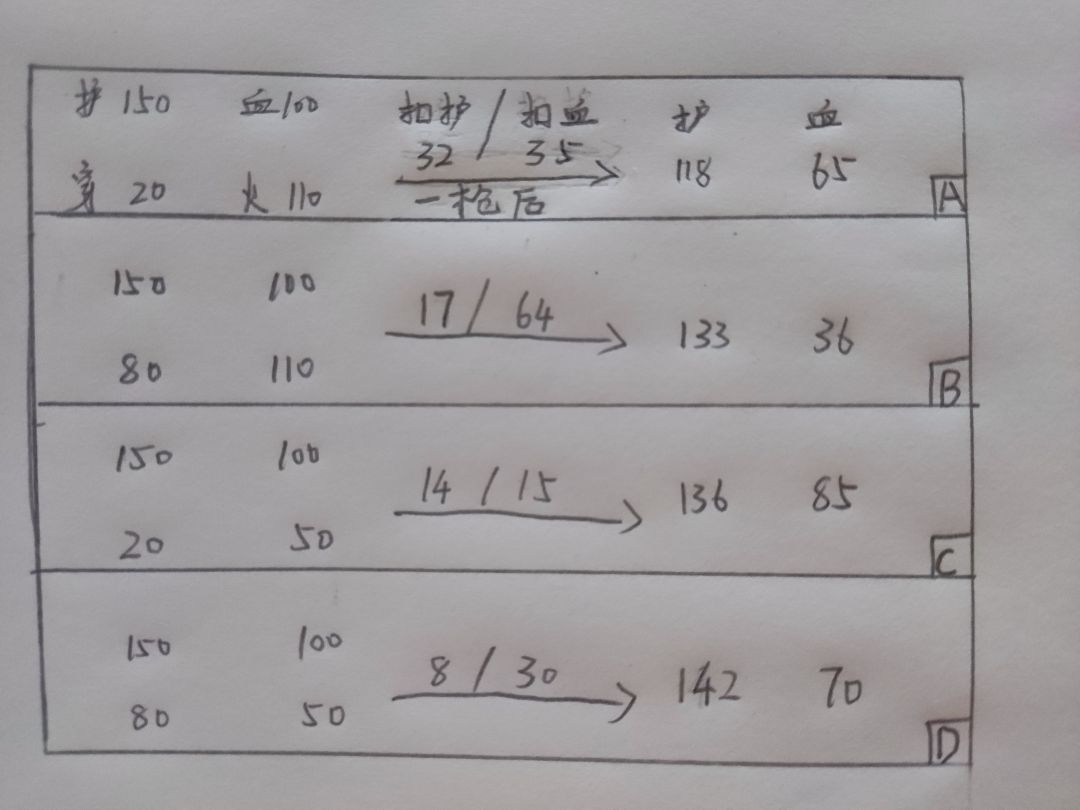 护 150 血 100 扣护 / 扣血 护 血
32 / 35 118 65
穿 20 火 110 一枪后 A
150 100
17 / 64 133 36
80 110 B
150 100
14 / 15 136 85
20 50 C
150 100
8 / 30 142 70
80 50 D